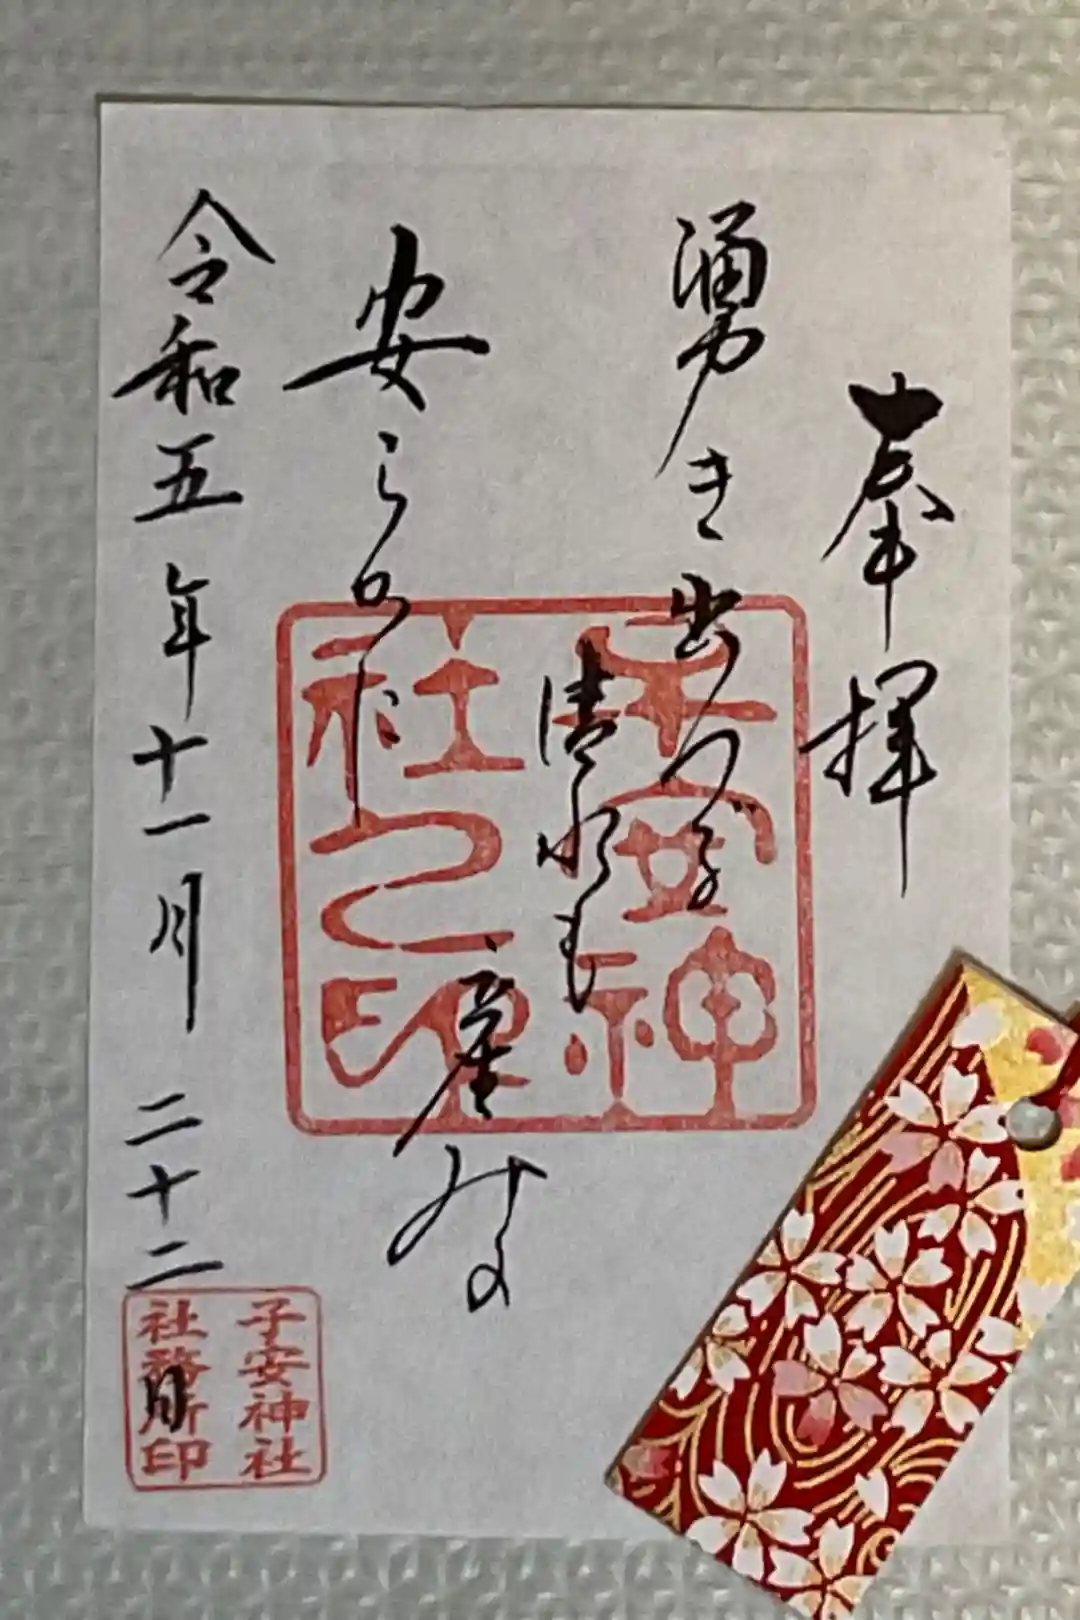 奉拝
湧き出づる
清水も
安らかに
産みの
令和五年十一月二十二日
子安神
社之印
子安神社
社務所印